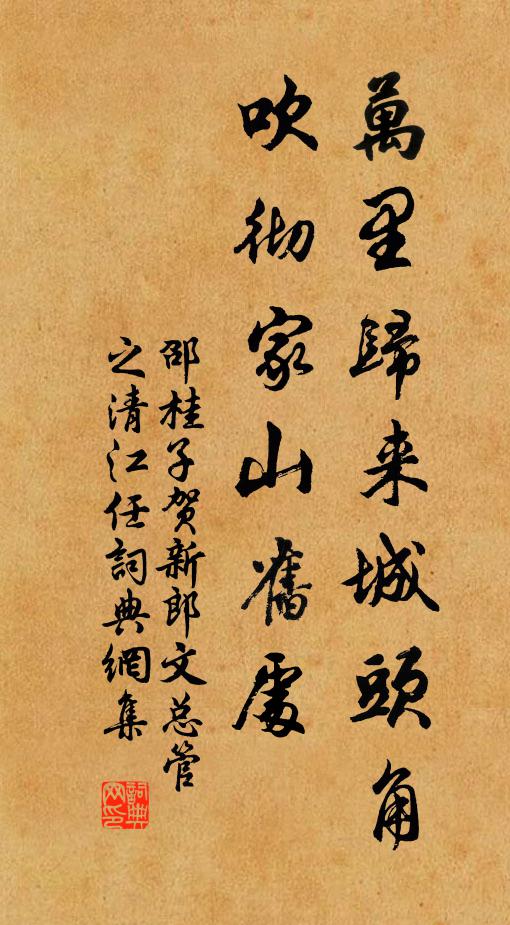 萬里歸来城頭角
吹彻家山舊處
邵桂子贺新郎文总管
之清江任詞典網集
詞典网印